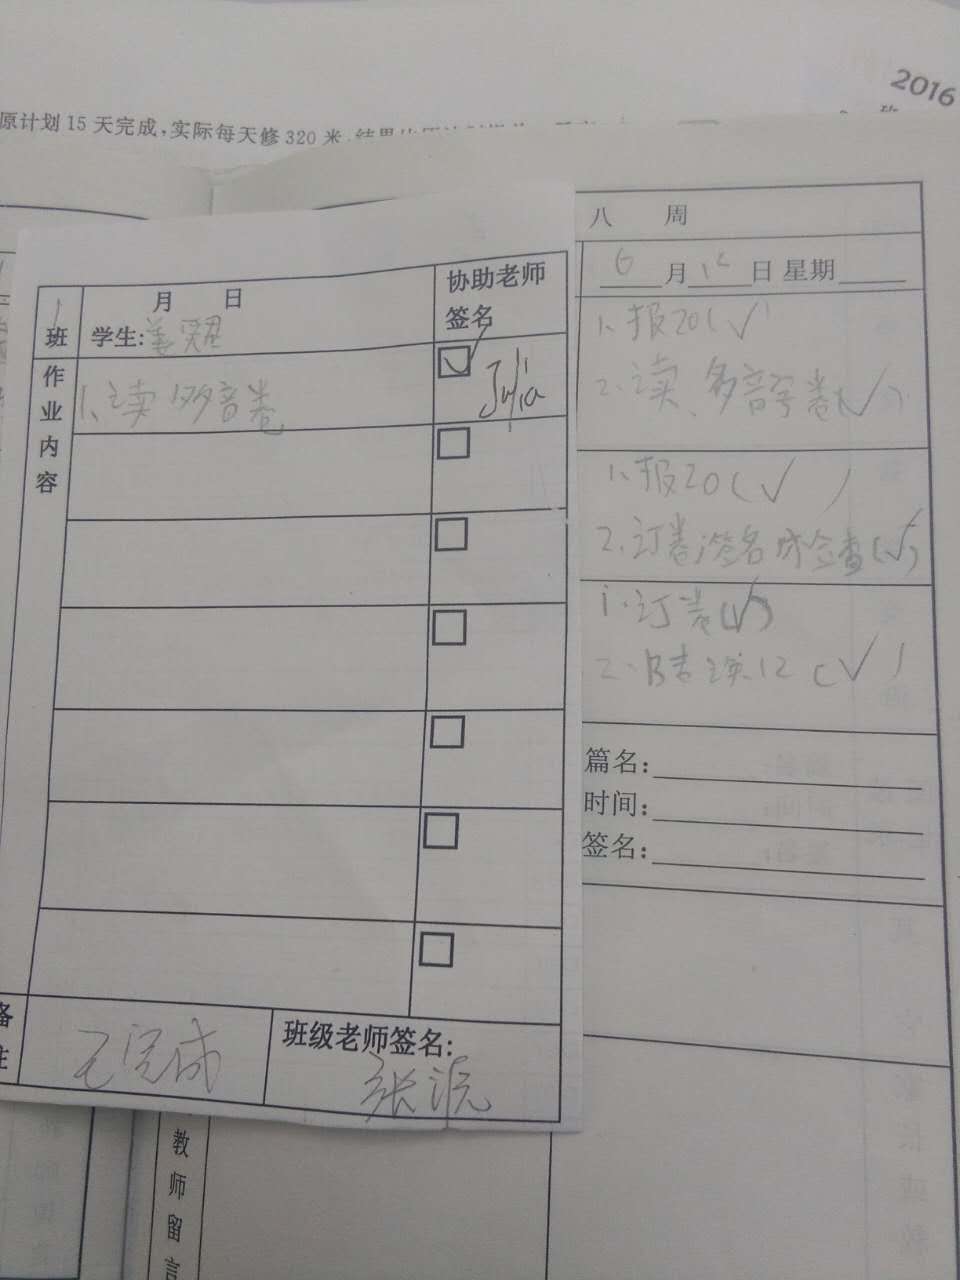 2016
原计划15天完成,实际每天修320米,结果
八 周
6月 日 星期
1、报20(√)
2、读、多音字卷(√)
1、报20(√ )
2、订卷,签名 (√)
1、订卷(√)
2、 12 (√ )
篇名:
时间:
签名:
月 日
协助老师
签名
班
学生:姜
作业内容
1、读 多音卷
Julia
备注
已完成
班级老师签名:
张
教师留言